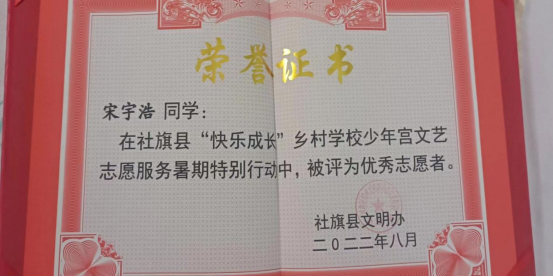 荣誉证书
宋宇浩 同学：
在社旗县“快乐成长”乡村学校少年宫文艺
志愿服务暑期特别行动中，被评为优秀志愿者。
社旗县文明办
二〇二二年八月